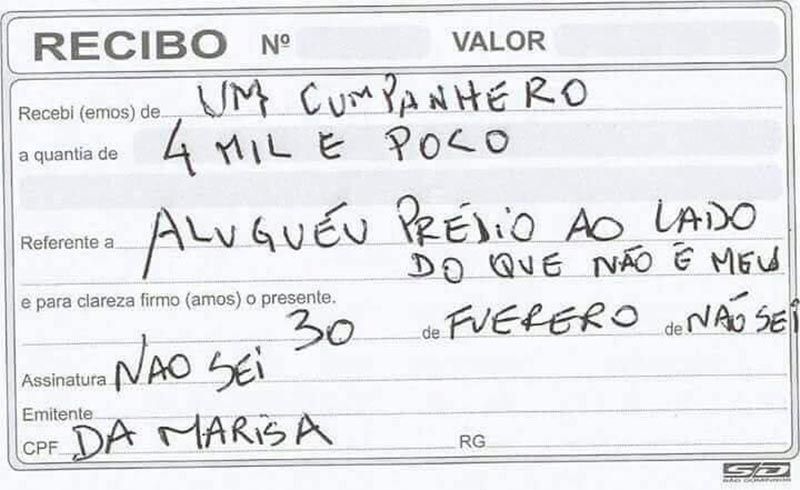 RECIBO Nº VALOR
Recebi (emos) de UM CUMPANHERO
a quantia de 4 MIL E POCO
Referente a ALUGUÉU PRÉDIO AO LADO
DO QUE NÃO É MEU
e para clareza firmo (amos) o presente.
30 de FVERERO de NÃO SEI
Assinatura NAO SEI
Emitente
CPF DA MARISA RG
SD
SÃO DOMINGOS